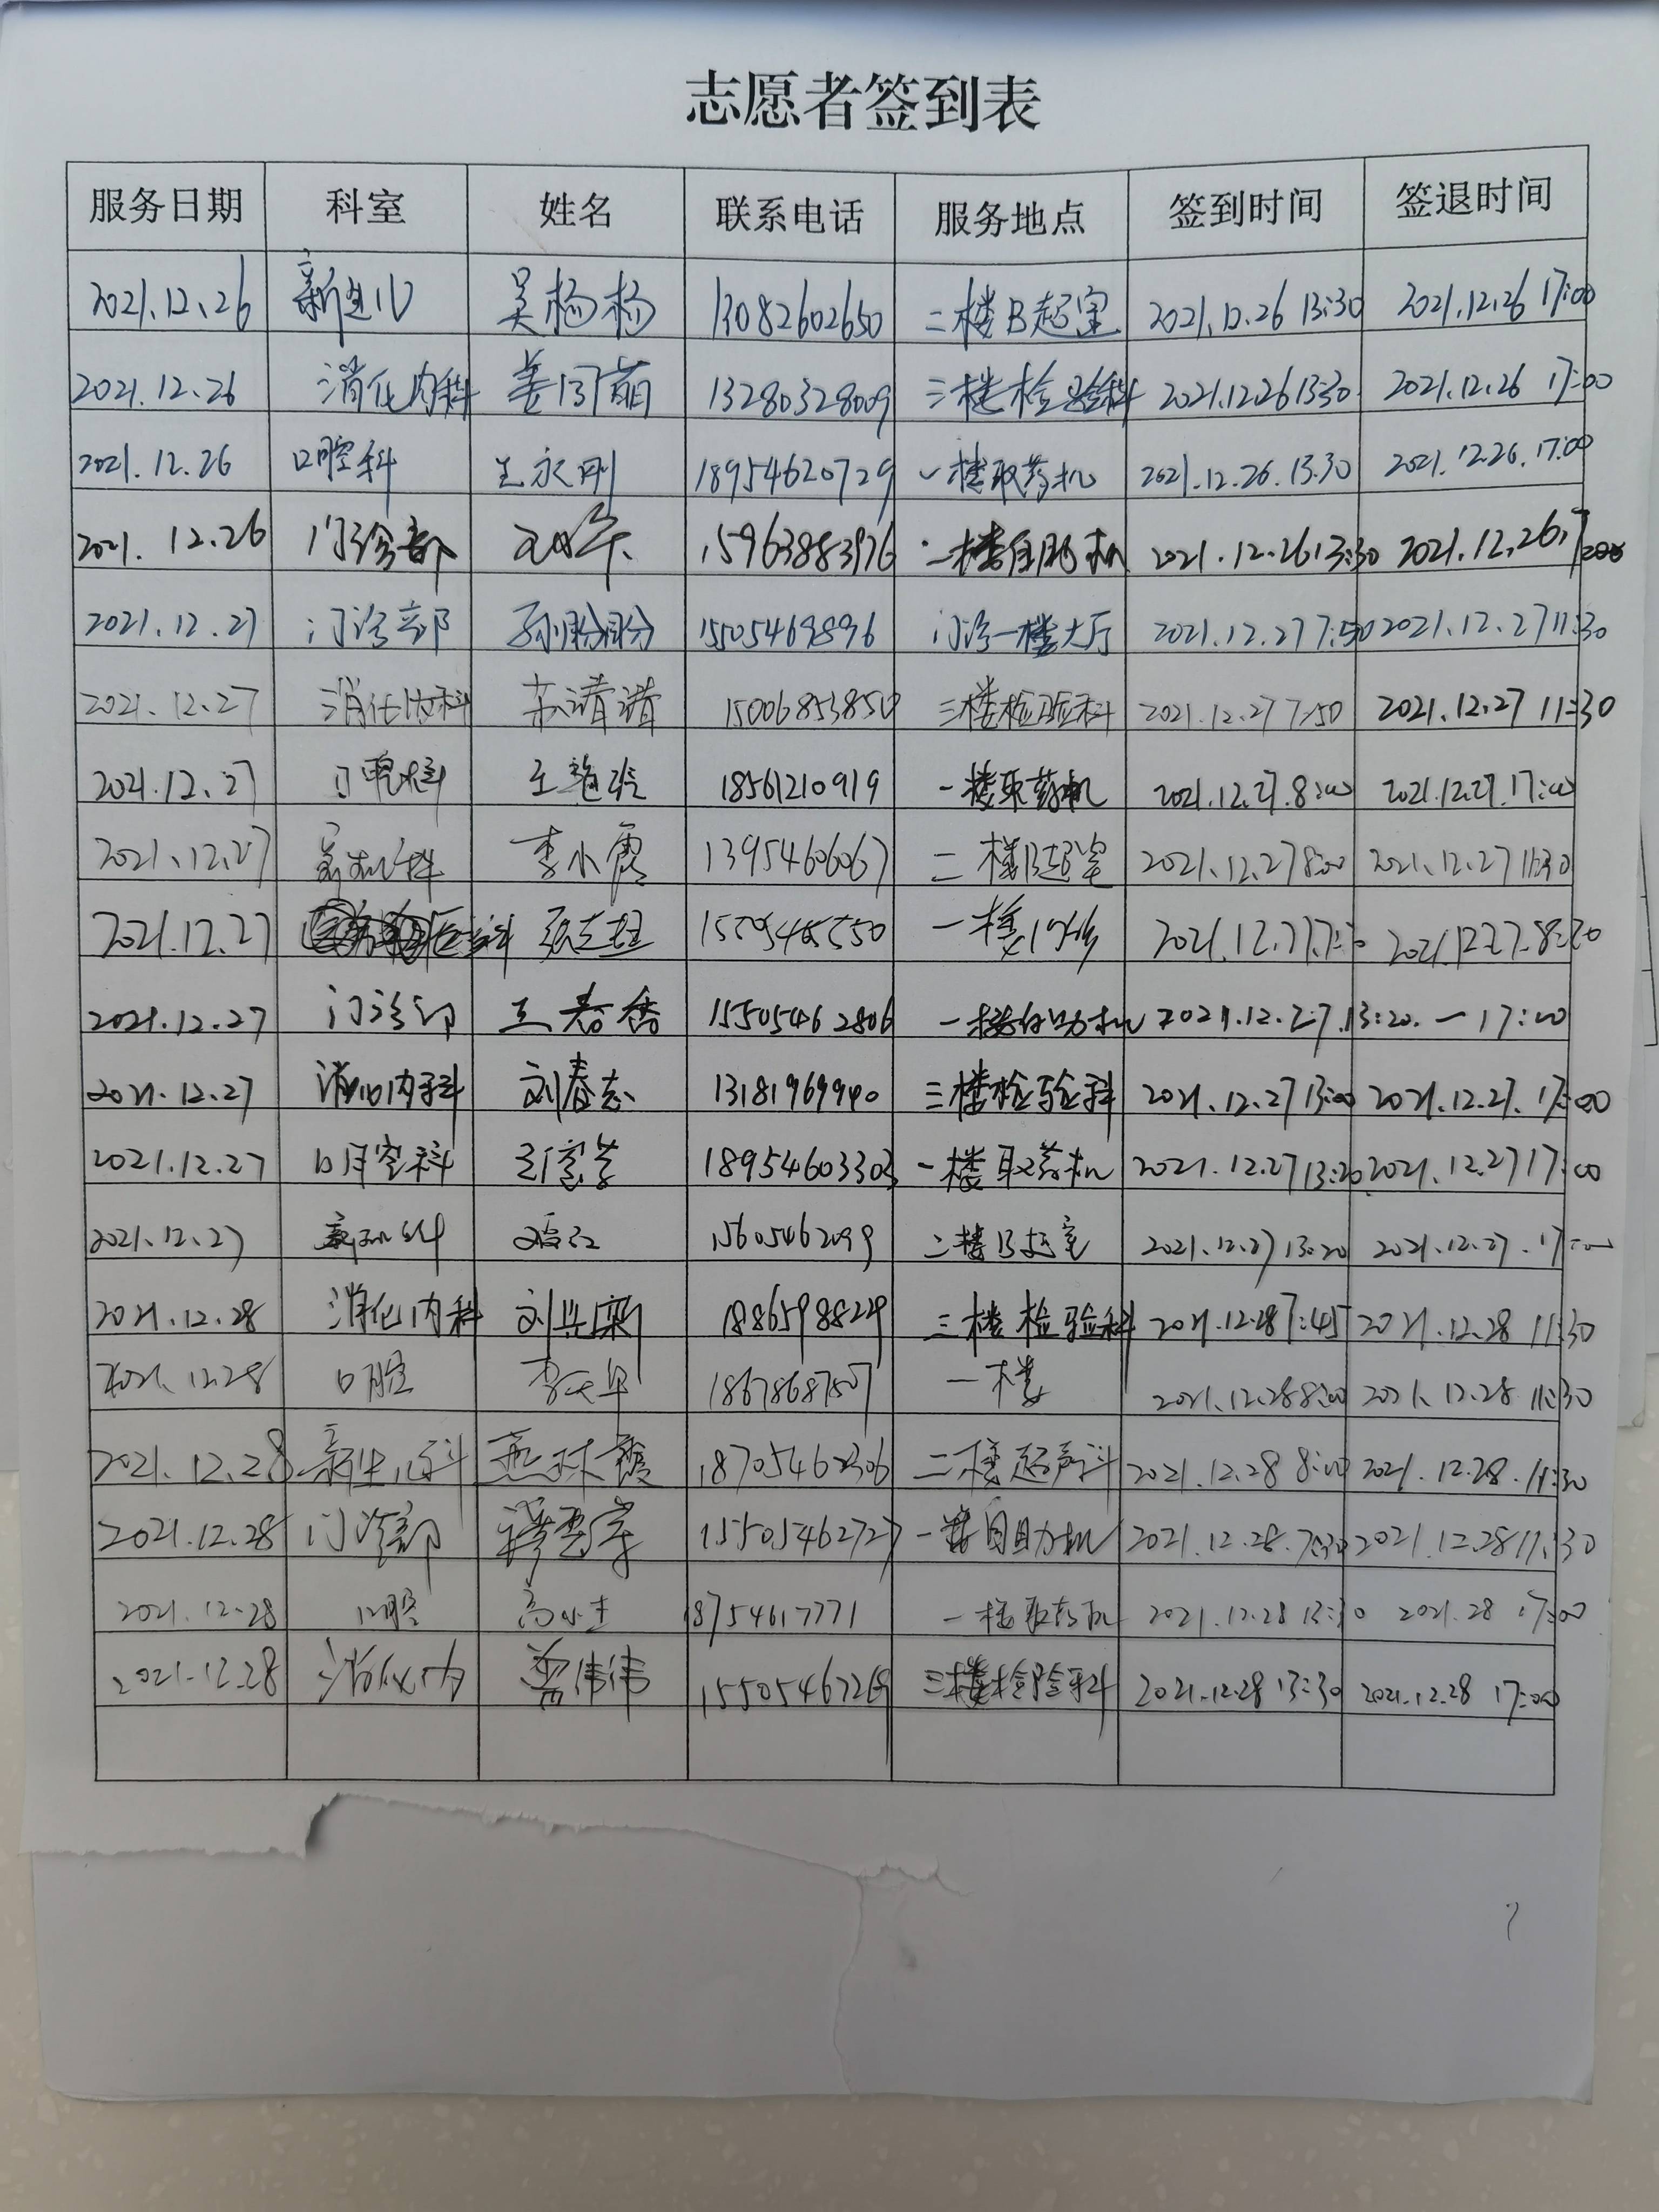 志愿者签到表
服务日期 科室 姓名 联系电话 服务地点 签到时间 签退时间
2021.12.26 新生儿 吴杨杨 13082602650 二楼B超室 2021.12.26 13:30 2021.12.26 17:00
2021.12.26 消化内科 姜同萌 13280328009 三楼检验科 2021.12.26 13:30 2021.12.26 17:00
2021.12.26 口腔科 王永刚 18954620729 一楼取药机 2021.12.26.13:30 2021.12.26.17:00
2021.12.26 门诊部 15963883976 2021.12.26 13:30 2021.12.26
2021.12.27 门诊部 孙盼盼 15054698896 门诊一楼大厅 2021.12.27 7:50 2021.12.27 11:30
2021.12.27 消化内科 15006853850 三楼检验科 2021.12.27 7:50 2021.12.27 11:30
2021.12.27 口腔科 18561210919 一楼取药机 2021.12.27.8:00 2021.12.27.17:00
2021.12.27 李小霞 13954606067 二楼B超室 2021.12.27 8:00 2021.12.27 11:30
2021.12.27 一楼
2021.12.27 门诊部 王春香 15505462806 一楼自助机 2021.12.27.13:20.—17:00
2021.12.27 消化内科 刘春志 13181969940 三楼检验科 2021.12.27 13:00 2021.12.27.17:00
2021.12.27 口腔科 18954603303 一楼取药机 2021.12.27 13:20 2021.12.27 17:00
2021.12.27 15605462099 二楼B超室 2021.12.27 13:20 2021.12.27.17:00
2021.12.28 消化内科 18865988229 三楼检验科 2021.12.28 7:45 2021.12.28 11:30
2021.12.28 口腔 18678687507 一楼 2021.12.28 8:00 2021.12.28 11:30
2021.12.28 新生儿科 18705462306 二楼超声科 2021.12.28 8:00 2021.12.28.11:30
2021.12.28 门诊部 15505462727 一楼自助机 2021.12.28.7:30 2021.12.28 11:30
2021.12.28 口腔 18754617771 一楼取药机 2021.12.28 13:30 2021.28 17:00
2021.12.28 消化内 曹伟伟 15505467269 三楼检验科 2021.12.28 13:30 2021.12.28 17:00